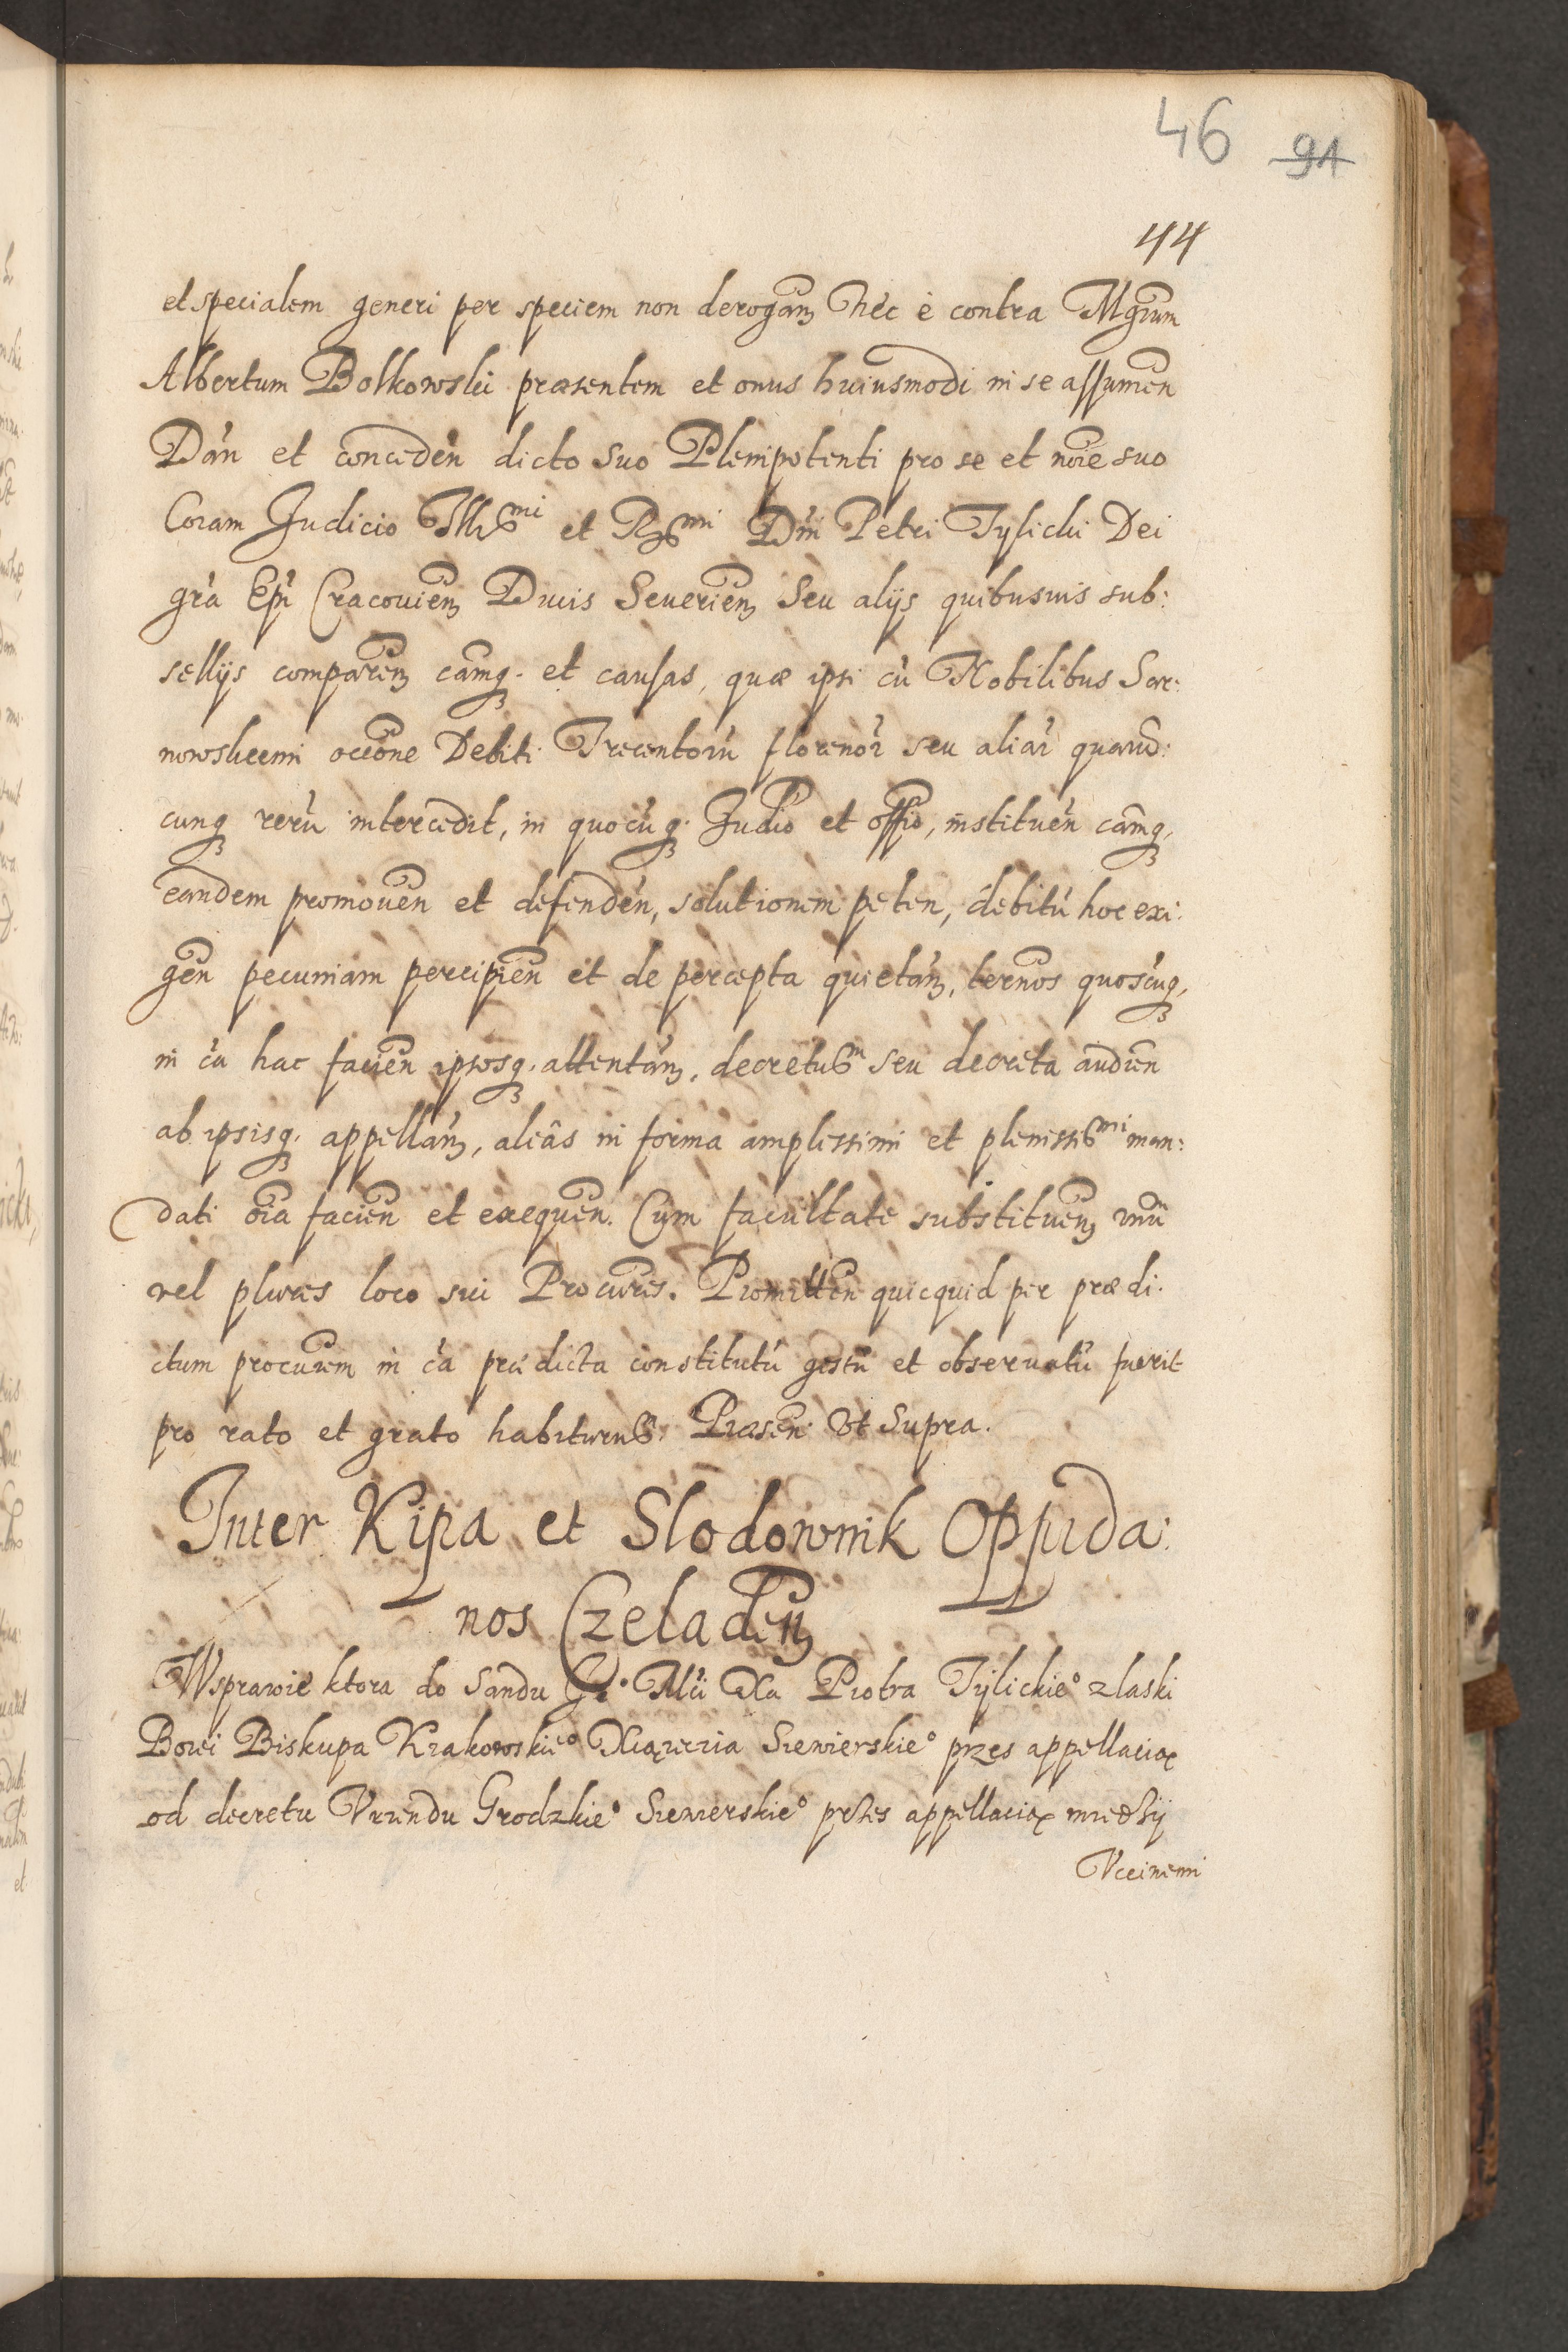 46 91
44
et specialem generi per speciem non derogam̃ Nec è contra Mgrũm
Albertum Bolkowski præsentem et onus huiusmodi in se assumeñ
Dañ et concedeñ dicto suo Plenipotenti pro se et noĩe suo
Coram Judicio Illr̃mi et Rmi Dñi Petri Tylicki Dei
gr̃a Epĩ Cracouieñ Ducis Seuerieñ Seu alijs quibusuis sub:
sellijs compareñ cãmq. et causas, quæ ipsi cũ Nobilibus Sar:
nowskiemi occõne Debiti Trecentorũ florenor̃ seu aliar̃ quarũ:
cunq rerũ intercedit, in quocũq. Judio et offio, instituẽn cãmq,
eandem promoueñ et defendeñ, solutionem peteñ, debitũ hoc exi:
geñ pecuniam percipieñ et de percepta quietañ, termõs quoscũq,
in c̃a hac facieñ ipsosq. attentañ, decretum seu decreta audieñ
ab ipsisq. appellañ, aliâs in forma amplissimi et plenissimi man:
dati oĩa facieñ et exequeñ. Cum facultate substitueñ unũ
vel plures loco sui Procur̃es. Promitteñ quicquid per prædi:
ctum procur̃em in c̃a prædicta constitutũ gestũ et obseruatũ fuerit
pro rato et grato habiturus. Præseñ Vt Supra.
Inter Kipa et Slodownik Oppida:
nos Czeladieñ
Wsprawie ktora do Sandu Je° Mĉi Xa Piotra Tylickie° zlaski
Bozei Biskupa Krakowskie° Xiązęcia Siewierskie° przes appellacią
od decretu Vrzendu Grodzkie° Siewierskie° przes appellacią miedzij
Vccinemi